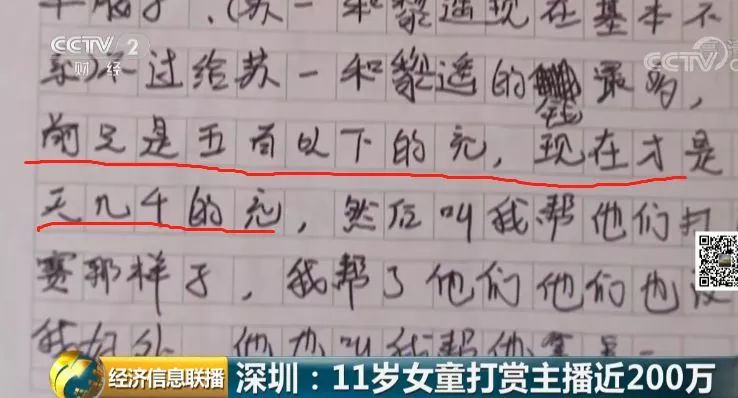 CCTV 2
财经
CCTV
(苏一和黎遥现在基本不
过给苏一和黎遥的钱最多，
前是五百以下的充，现在才是
天几千的充，然后叫我帮他们打
赛那样子，我帮了他们他们也没
叫我帮他
经济信息联播
深圳：11岁女童打赏主播近200万